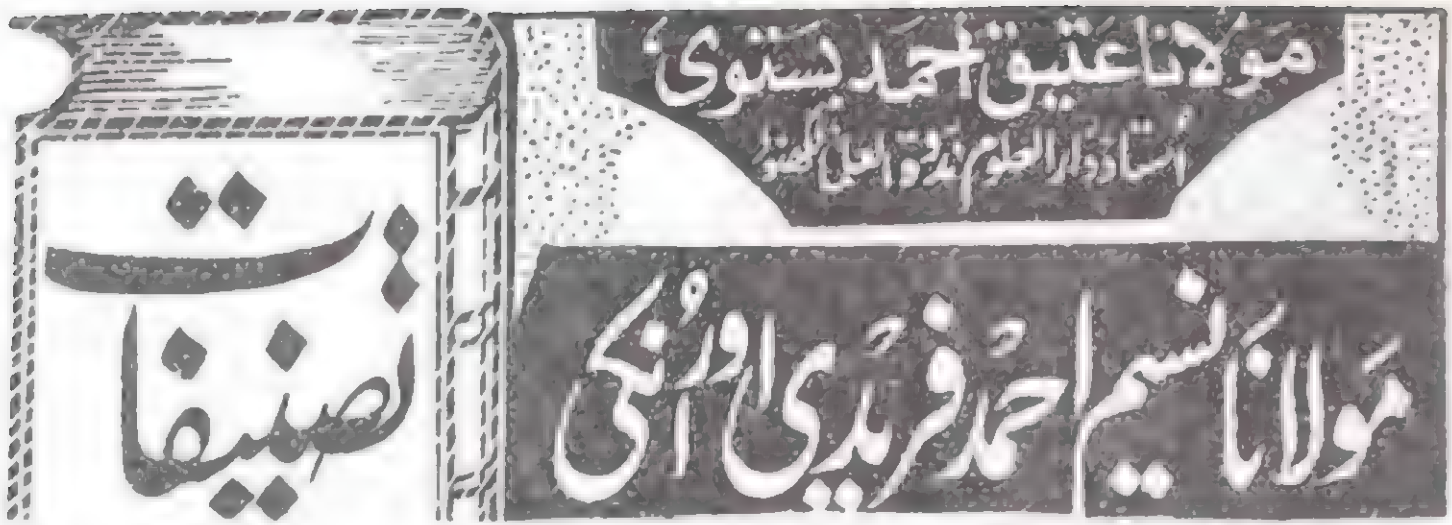 مولانا عتیق احمد بستوی
استاذ دارالعلوم ندوۃ العلماء لکھنؤ
مولانا نسیم احمد فریدی اور اُنکی
تصنیفات